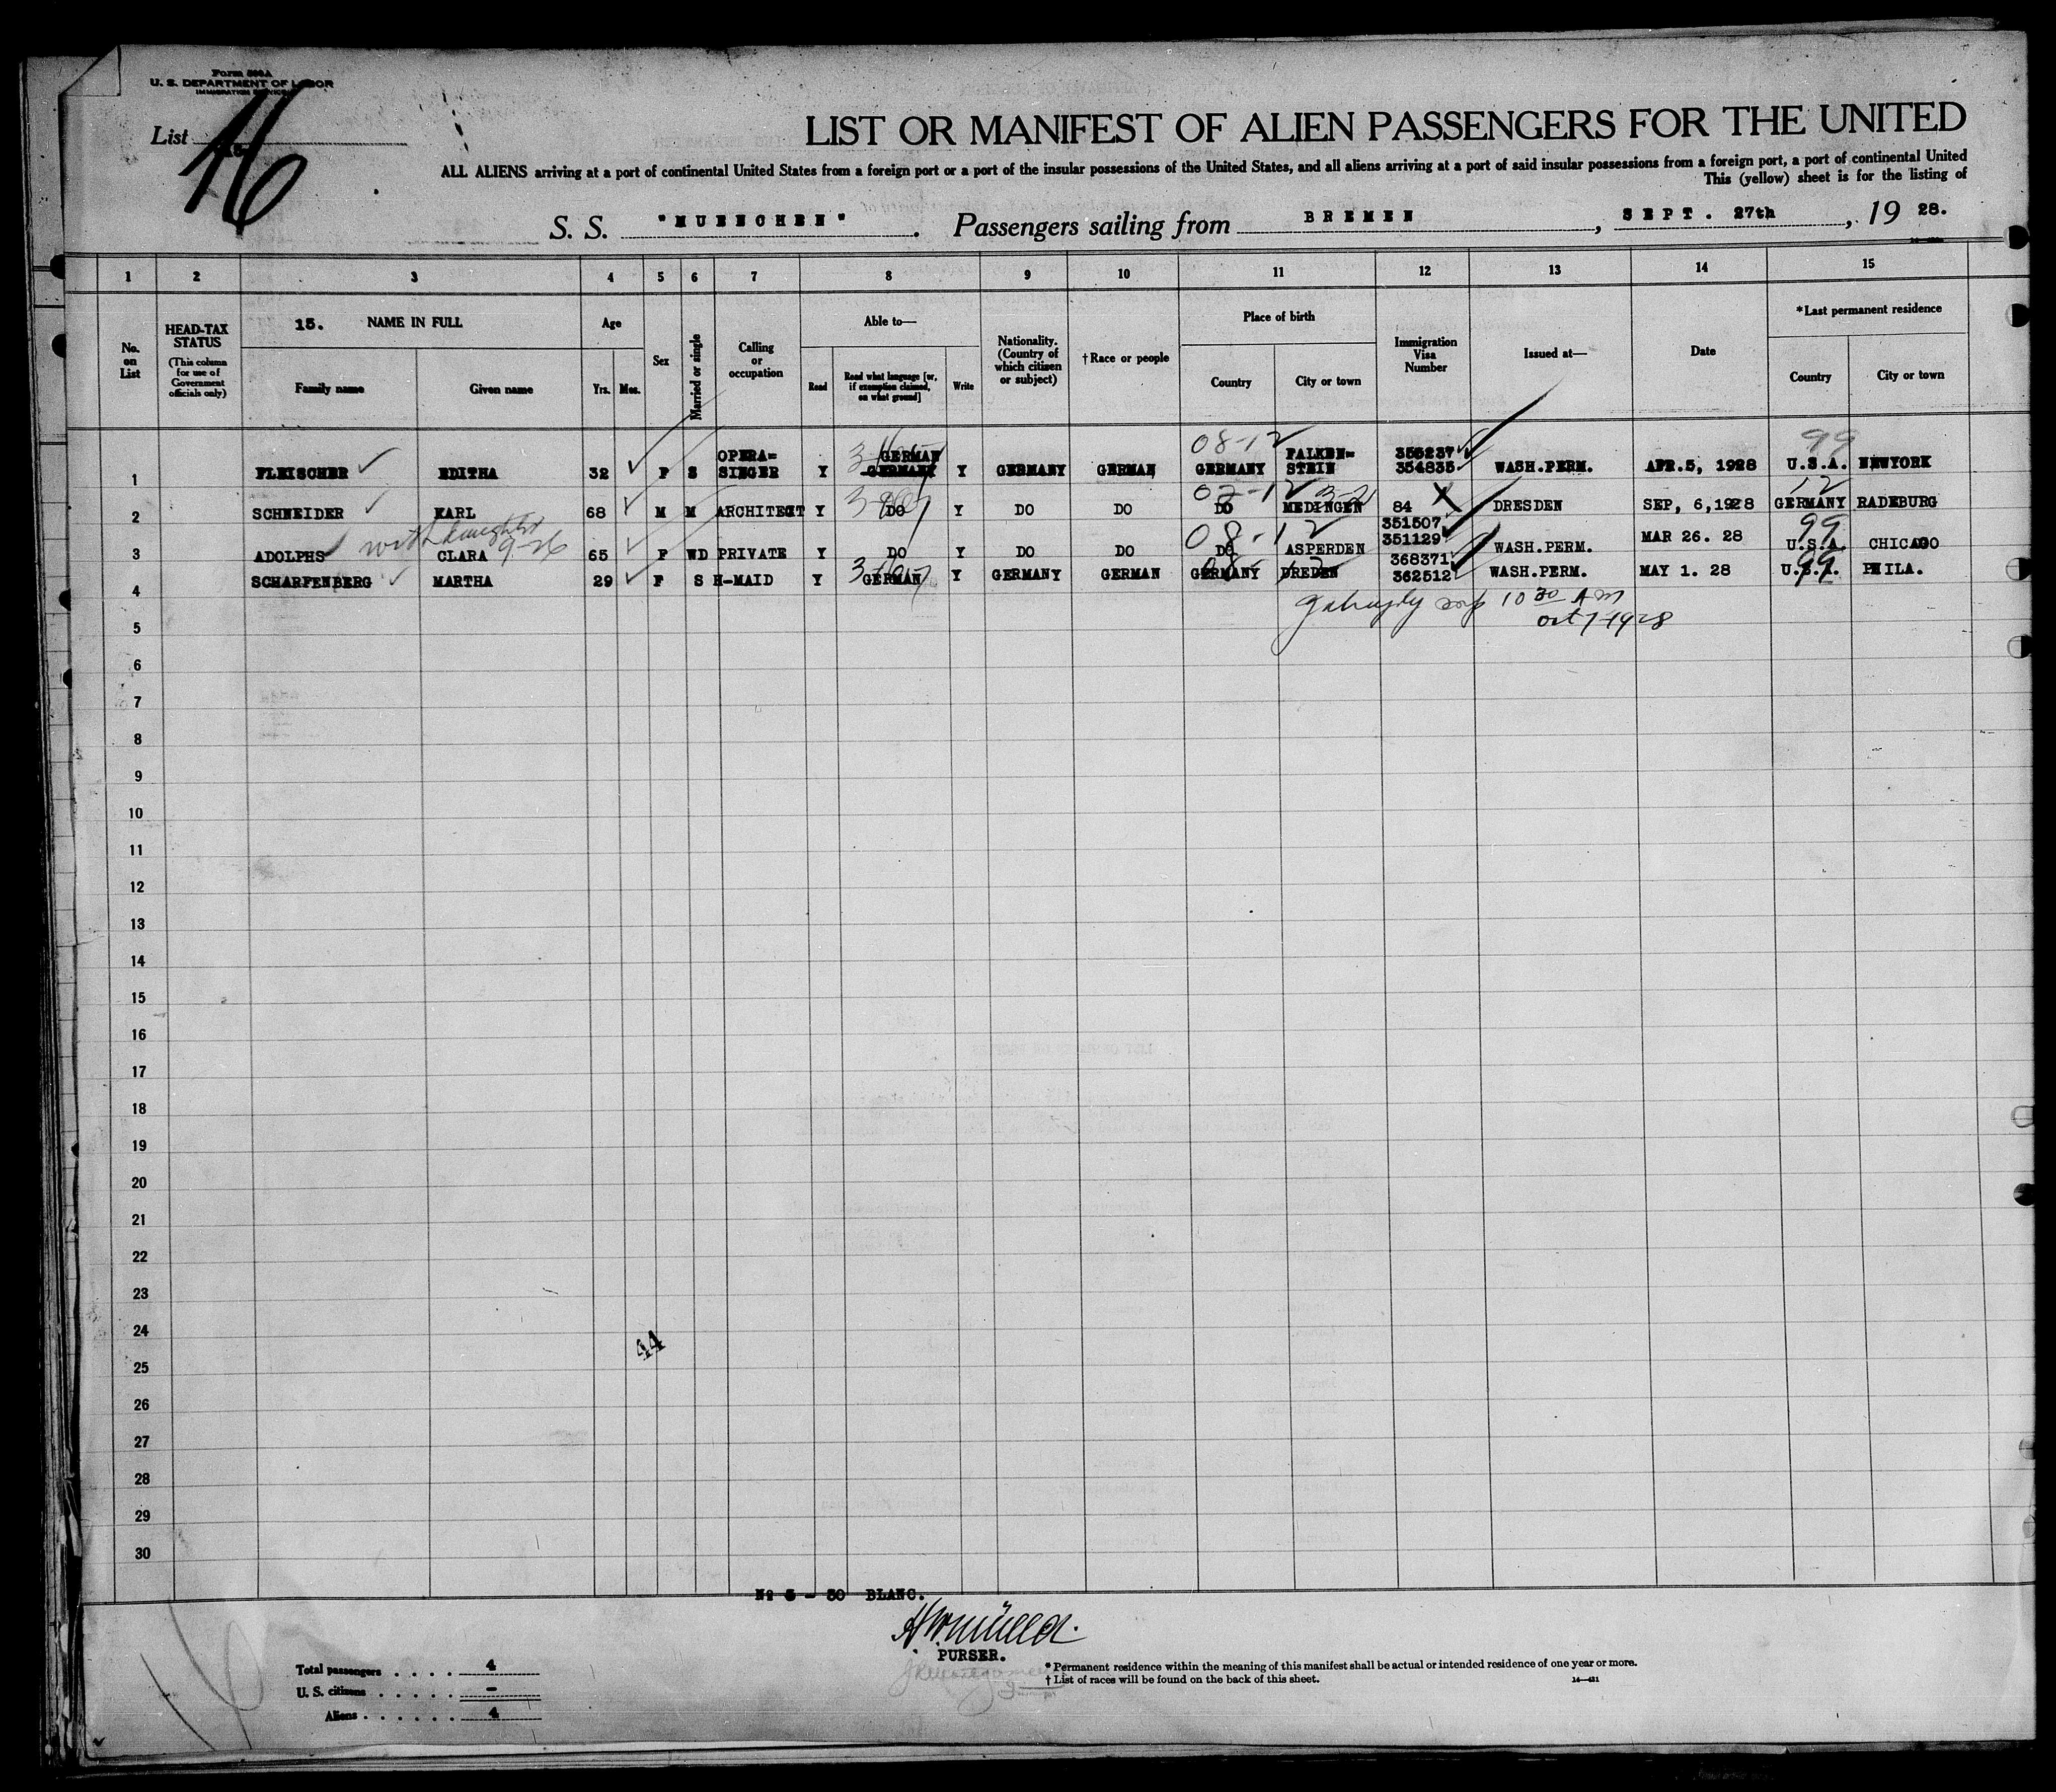 Form 500A
U. S. DEPARTMENT OF LABOR
IMMIGRATION SERVICE
List 16
LIST OR MANIFEST OF ALIEN PASSENGERS FOR THE UNITED
ALL ALIENS arriving at a port of continental United States from a foreign port or a port of the insular possessions of the United States, and all aliens arriving at a port of said insular possessions from a foreign port, a port of continental United
This (yellow) sheet is for the listing of
S. S. "MUENCHEN". Passengers sailing from BREMEN, SEPT. 27th, 19 28.
1 2 3 4 5 6 7 8 9 10 11 12 13 14 15
No. on List
HEAD-TAX STATUS
(This column for use of Government officials only)
15. NAME IN FULL
Family name Given name
Age
Yrs. Mos.
Sex
Married or single
Calling or occupation
Able to—
Read
Read what language [or, if exemption claimed, on what ground]
Write
Nationality. (Country of which citizen or subject)
†Race or people
Place of birth
Country City or town
Immigration Visa Number
Issued at—
Date
*Last permanent residence
Country City or town
08-12 99
1 FLEISCHER EDITHA 32 F S OPERA= SINGER Y GERMAN GERMANY Y GERMANY GERMAN GERMANY FALKEN= STEIN 355237 354835 WASH.PERM. APR.5, 1928 U.S.A. NEWYORK
12
2 SCHNEIDER KARL 68 M M ARCHITECT Y DO Y DO DO DO MEDINGEN 84 X DRESDEN SEP, 6,1928 GERMANY RADEBURG
with daughter 9-26 08-12 99
3 ADOLPHS CLARA 65 F WD PRIVATE Y DO Y DO DO DO ASPERDEN 351507 351129 WASH.PERM. MAR 26. 28 U.S.A. CHICAGO
4 SCHARFENBERG MARTHA 29 F S H-MAID Y GERMAN Y GERMANY GERMAN GERMANY DREDEN 368371 362512 WASH.PERM. MAY 1. 28 U.S.A. PHILA.
99
10 30 AM
5
Oct 7 1928
6
7
8
9
10
11
12
13
14
15
16
17
18
19
20
21
22
23
24
44
25
26
27
28
29
30
No 5 - 30 BLANC.
PURSER.
Total passengers . . . . 4
U. S. citizens . . . . . -
Aliens . . . . . . 4
*Permanent residence within the meaning of this manifest shall be actual or intended residence of one year or more.
†List of races will be found on the back of this sheet.
14—421